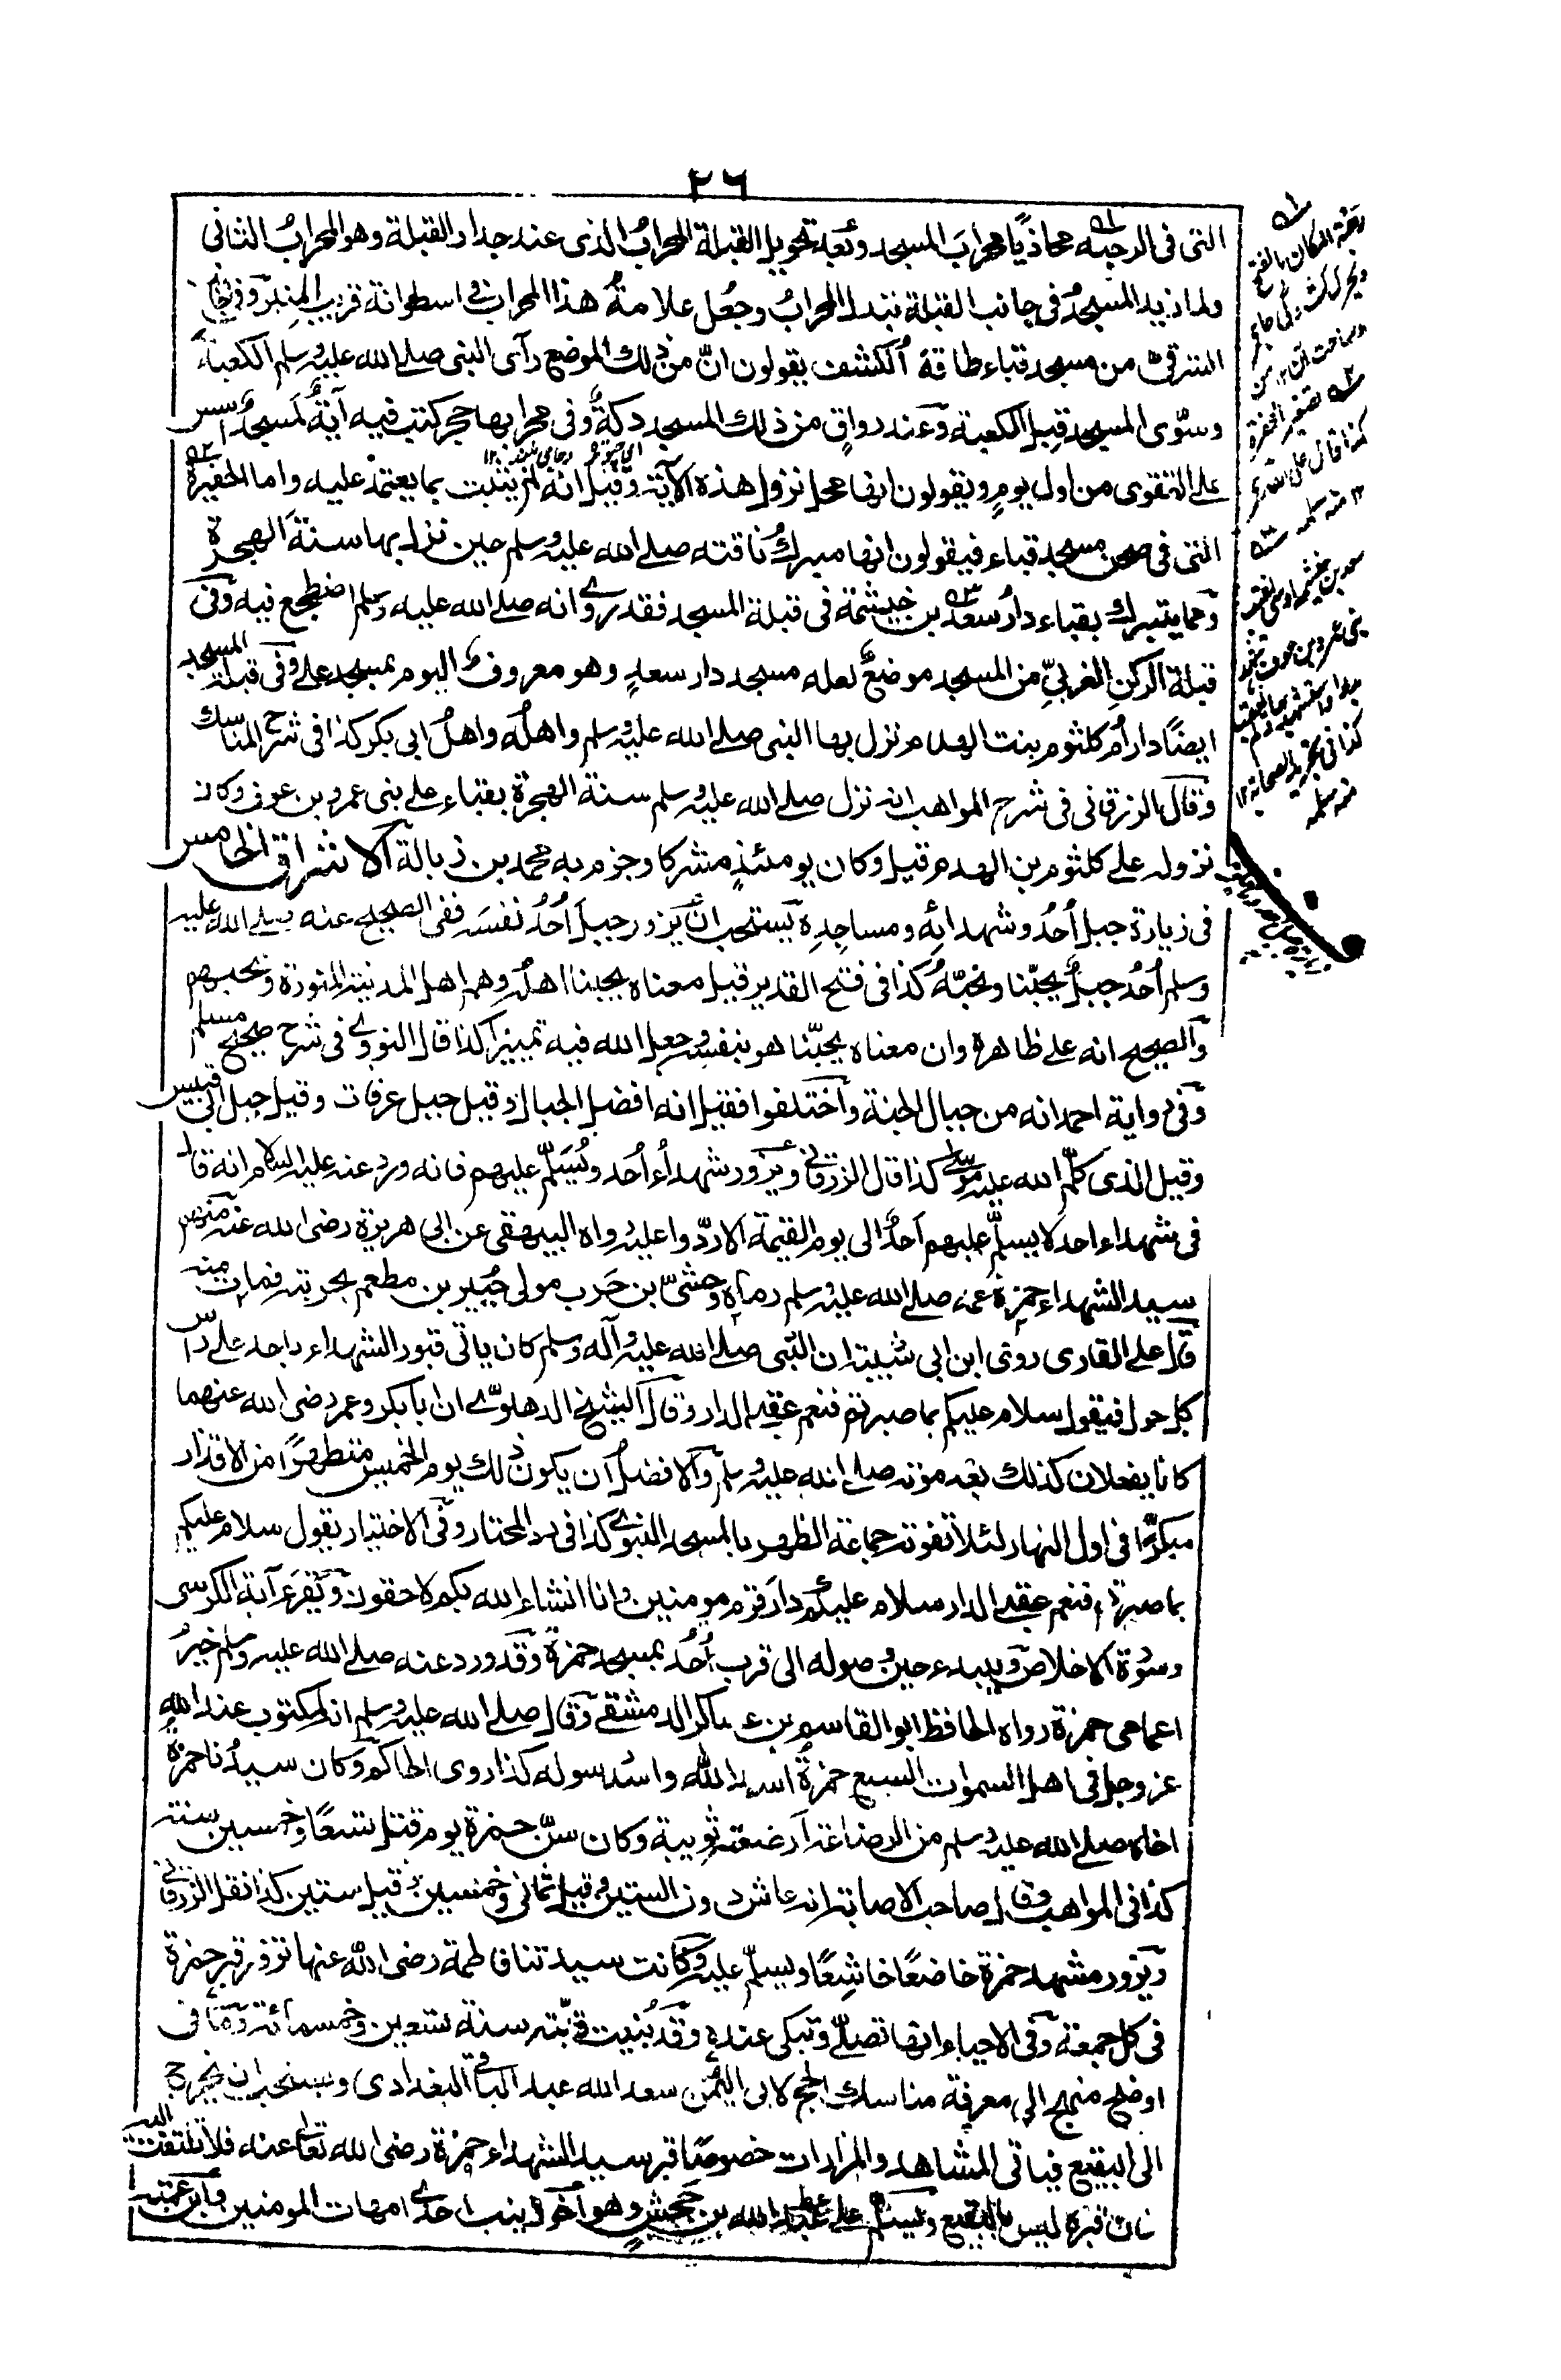 ٢٦
التى فى الرحبة محاذيًا محراب المسجد وبَعد تحويل القبلة المحرابُ الذى عند جدار القبلة وهو المحرابُ الثانى
ولما زيد المسجدُ فى جانب القبلة تبدل المحرابُ وجُعل علامةُ هذا المحراب فى اسطوانة قريب المنبر وفى
الشرقى من مسجد قباء طاقة الكشف يقولون انّ من ذلك الموضع رآى النبى صلے الله عليه وسلم الكعبة
وسوّى المسجد قِبل الكعبة وعند رواق من ذلك المسجد دكةٌ وفى محرابها حجر كتب فيه آيةُ لَمسجدٌ اُسس
على التقوى من اول يومٍ ويقولون انها محل نزول هذه الآية وقيل انه لم يثبت بما يعتمد عليه واما الحفيرة
التى فى صحن مسجد قباء فيقولون انها مبرك ناقته صلے الله عليه وسلم حين نزل بها سنة الهجرة
ومما يتبرك بقباء دار سعد بن خيثمة فى قبلة المسجد فقد روے انه صلے الله عليه وسلم اضطجع فيه وفى
قبلة الركن الغربىّ من المسجد موضعٌ لعله مسجد دار سعدٍ وهو معروف اليوم بمسجد على وفى قبلة المسجد
ايضًا دار ام كلثوم بنت الهدم نزل بها النبى صلے الله عليه وسلم واهلُه واهلُ ابى بكر كذا فى شرح المناسك
وقال الزرقانى فى شرح المواهب انه نزل صلے الله عليه وسلم سنة الهجرة بقباء على بنى عمرو بن عوف وكان
نزوله على كلثوم بن الهدم قيل وكان يومئذٍ مشركا وجزم به محمد بن زبالة الاشراق الخامس
فى زيارة جبل اُحُد وشهدائِه ومساجدِه يستحب ان يزور جبلَ اُحُد نفسَه ففى الصحيح عنه صلے الله عليه
وسلم اُحُد جبلٌ يحبّنا ونحبّهُ كذا فى فتح القدير قيل معناه يحبنا اهلُه وهم اهل المدينة المنورة ونحبهم
والصحيح انه على ظاهره وان معناه يحبّنا هو بنفسه وجعل الله فيه تمييزا كذا قال النووے فى شرح صحيح مسلم
وفى رواية احمد انه من جبال الجنة واختلفوا فقيل انه افضل الجبال وقيل جبل عرفات وقيل جبل ابى قبيس
وقيل الذى كلّم الله عليه موسى كذا قال الزرقانے ويزور شهداء اُحُد ويُسَلّم عليهم فانه ورد عنه عليه السلام انه قال
فى شهداء احد لا يسلّم عليهم اَحدٌ الى يوم القيمة الا ردّوا عليه رواه البيهقى عن ابى هريرة رضى الله عنه
سيد الشهداء حمزة عمه صلے الله عليه وسلم رماه وحشىّ بن حَرب مولى جُبير بن مطعم بحربته فمات منه
قال على القارى روى ابن ابى شيبة ان النبى صلے الله عليه وآله وسلم كان ياتى قبور الشهداء باحد على راس
كل حول فيقول سلام عليكم بما صبرتم فنعم عقبى الدار وقال الشيخ الدهلوےّ ان ابا بكر وعمر رضى الله عنهما
كانا يفعلان كذلك بعد موته صلے الله عليه وسلم والافضلُ ان يكون ذلك يوم الخميس متطهرًا من الاقذار
مبكّرًا فى اول النهار لئلا تفوته جماعة الظهر بالمسجد النبوے كذا فى رد المحتار وفى الاختيار يقول سلام عليكم
بما صبرتم فنعم عقبى الدار سلام عليكم دارَ قوم مومنين وانا انشاء الله بكم لاحقون ويقرء آية الكرسى
وسورة الاخلاص ويبدء حين وصوله الى قرب اُحُد بمسجد حمزة وقد ورد عنه صلے الله عليه وسلم خيرُ
اعمامى حمزة رواه الحافظ ابو القاسم بن عساكر الدمشقے وقال صلے الله عليه وسلم انه لمكتوب عند الله
عز وجل فى اهل السموات السبع حمزةُ اسد الله واسُد رسوله كذا روى الحاكم وكان سيدُنا حمزة
اخاه صلے الله عليه وسلم من الرضاعة ارضعته ثويبة وكان سنّ حمزة يوم قتل تسعًا وخمسين سنة
كذا فى المواهب وقال صاحب الاصابة انه عاش دون الستين وقيل ثمانى وخمسين وقيل ستين كذا نقل الزرقانى
ويزور مشهد حمزة خاضعًا خاشِعًا ويسلّم عليه وكانت سيدتنا فاطمة رضى الله عنها تزور قبر حمزة
فى كل جمعة وفى الاحياء انها تصلّے وتبكى عنده وقد بُنيت قبّته سنة تسعين وخمسمائة وقال فى
اوضح منهج الى معرفة مناسك الحج لابى اليُمْن سعد الله عبد الباقى البغدادى ويستحب ان يخرج
الى البقيع فياتى المشاهد والمزارات خصوصًا قبر سيد الشهداء حمزة رضى الله تعا عنه فلا تلتفت اليه
فان قبره ليس بالبقيع ويُسلّم على عبد الله بن جحشٍ وهو اخو زينب احدى امهات المومنين وابن عمته
رحبة المكان بالفتح
تصغير الحفرة
كذا قال على القارى
١٢ منه سلمه
سعد بن خيثمة اوسى
كذا فى تجريد الصحابة ١٢
منه سلمه